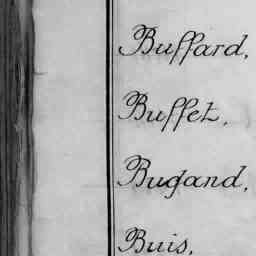 Buffard,
Buffet,
Bugand,
Buis,